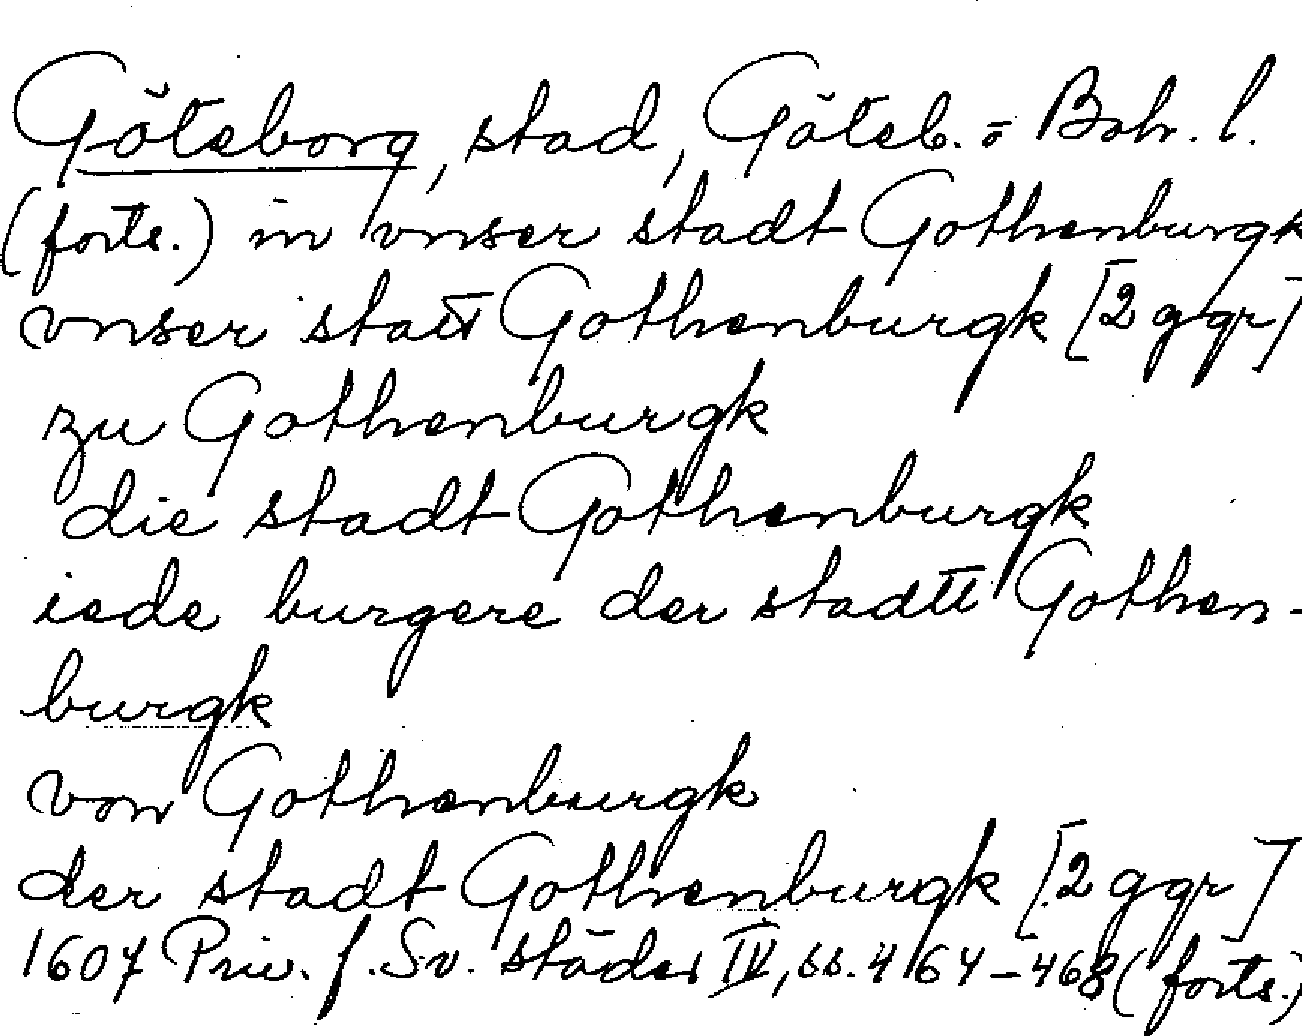 Göteborg, stad, Göteb. o Boh. l.
(forts.) in vnser stadt Gothenburgk
vnser statt Gothenburgk [2 ggr]
zu Gothenburgk
die stadt Gothenburgk
iede burgere der stadtt Gothen-
burgk
von Gothenburgk
der stadt Gothenburgk [2 ggr]
1607 Priv. f. Sv. städer IV, ss. 464-468 (forts.)